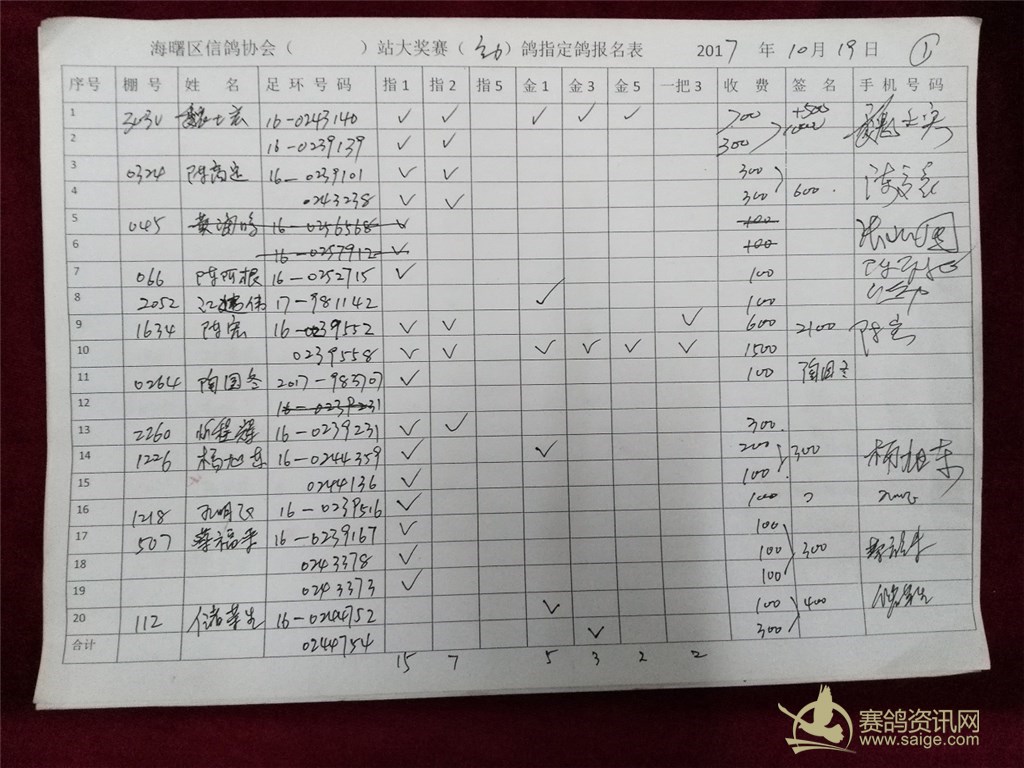 海曙区信鸽协会（ ）站大奖赛（ ）鸽指定鸽报名表 2017 年 10 月 19 日 ①
序号 棚 号 姓 名 足 环 号 码 指1 指2 指5 金1 金3 金5 一把3 收 费 签 名 手 机 号 码
1 16-0243140 ✓ ✓ ✓ ✓ ✓ 700 +500
2 16-0239139 ✓ ✓ 300 1000
3 0324 16-0239101 ✓ ✓ 300
4 0243238 ✓ ✓ 300 600
5 045 16-0256568 ✓ 100
6 16-0257912 ✓ 100
7 066 陈阿根 16-0252715 ✓ 100
8 2052 17-981142 ✓ 100
9 1634 陈宏 16-0239552 ✓ ✓ ✓ 600 2100 陈宏
10 0239558 ✓ ✓ ✓ ✓ ✓ ✓ 1500
11 0264 陶国冬 2017-983707 ✓ 100 陶国冬
12 16-0239231
13 2260 16-0239231 ✓ ✓ 300
14 1226 杨旭东 16-0244359 ✓ ✓ 200 300 杨旭东
15 0244136 ✓ 100
16 1218 16-0239516 ✓ 100
17 507 蔡福华 16-0239167 ✓ 100
18 0243378 ✓ 100 300
19 0243373 ✓ 100
20 112 16-0244752 ✓ 100 400
合计 0244754 ✓ 300
15 7 5 3 2 2
赛鸽资讯网
www.saige.com